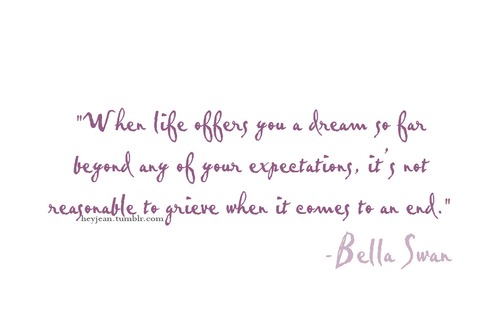 "When life offers you a dream so far
beyond any of your expectations, it's not
reasonable to grieve when it comes to an end."
heyjean.tumblr.com
-Bella Swan